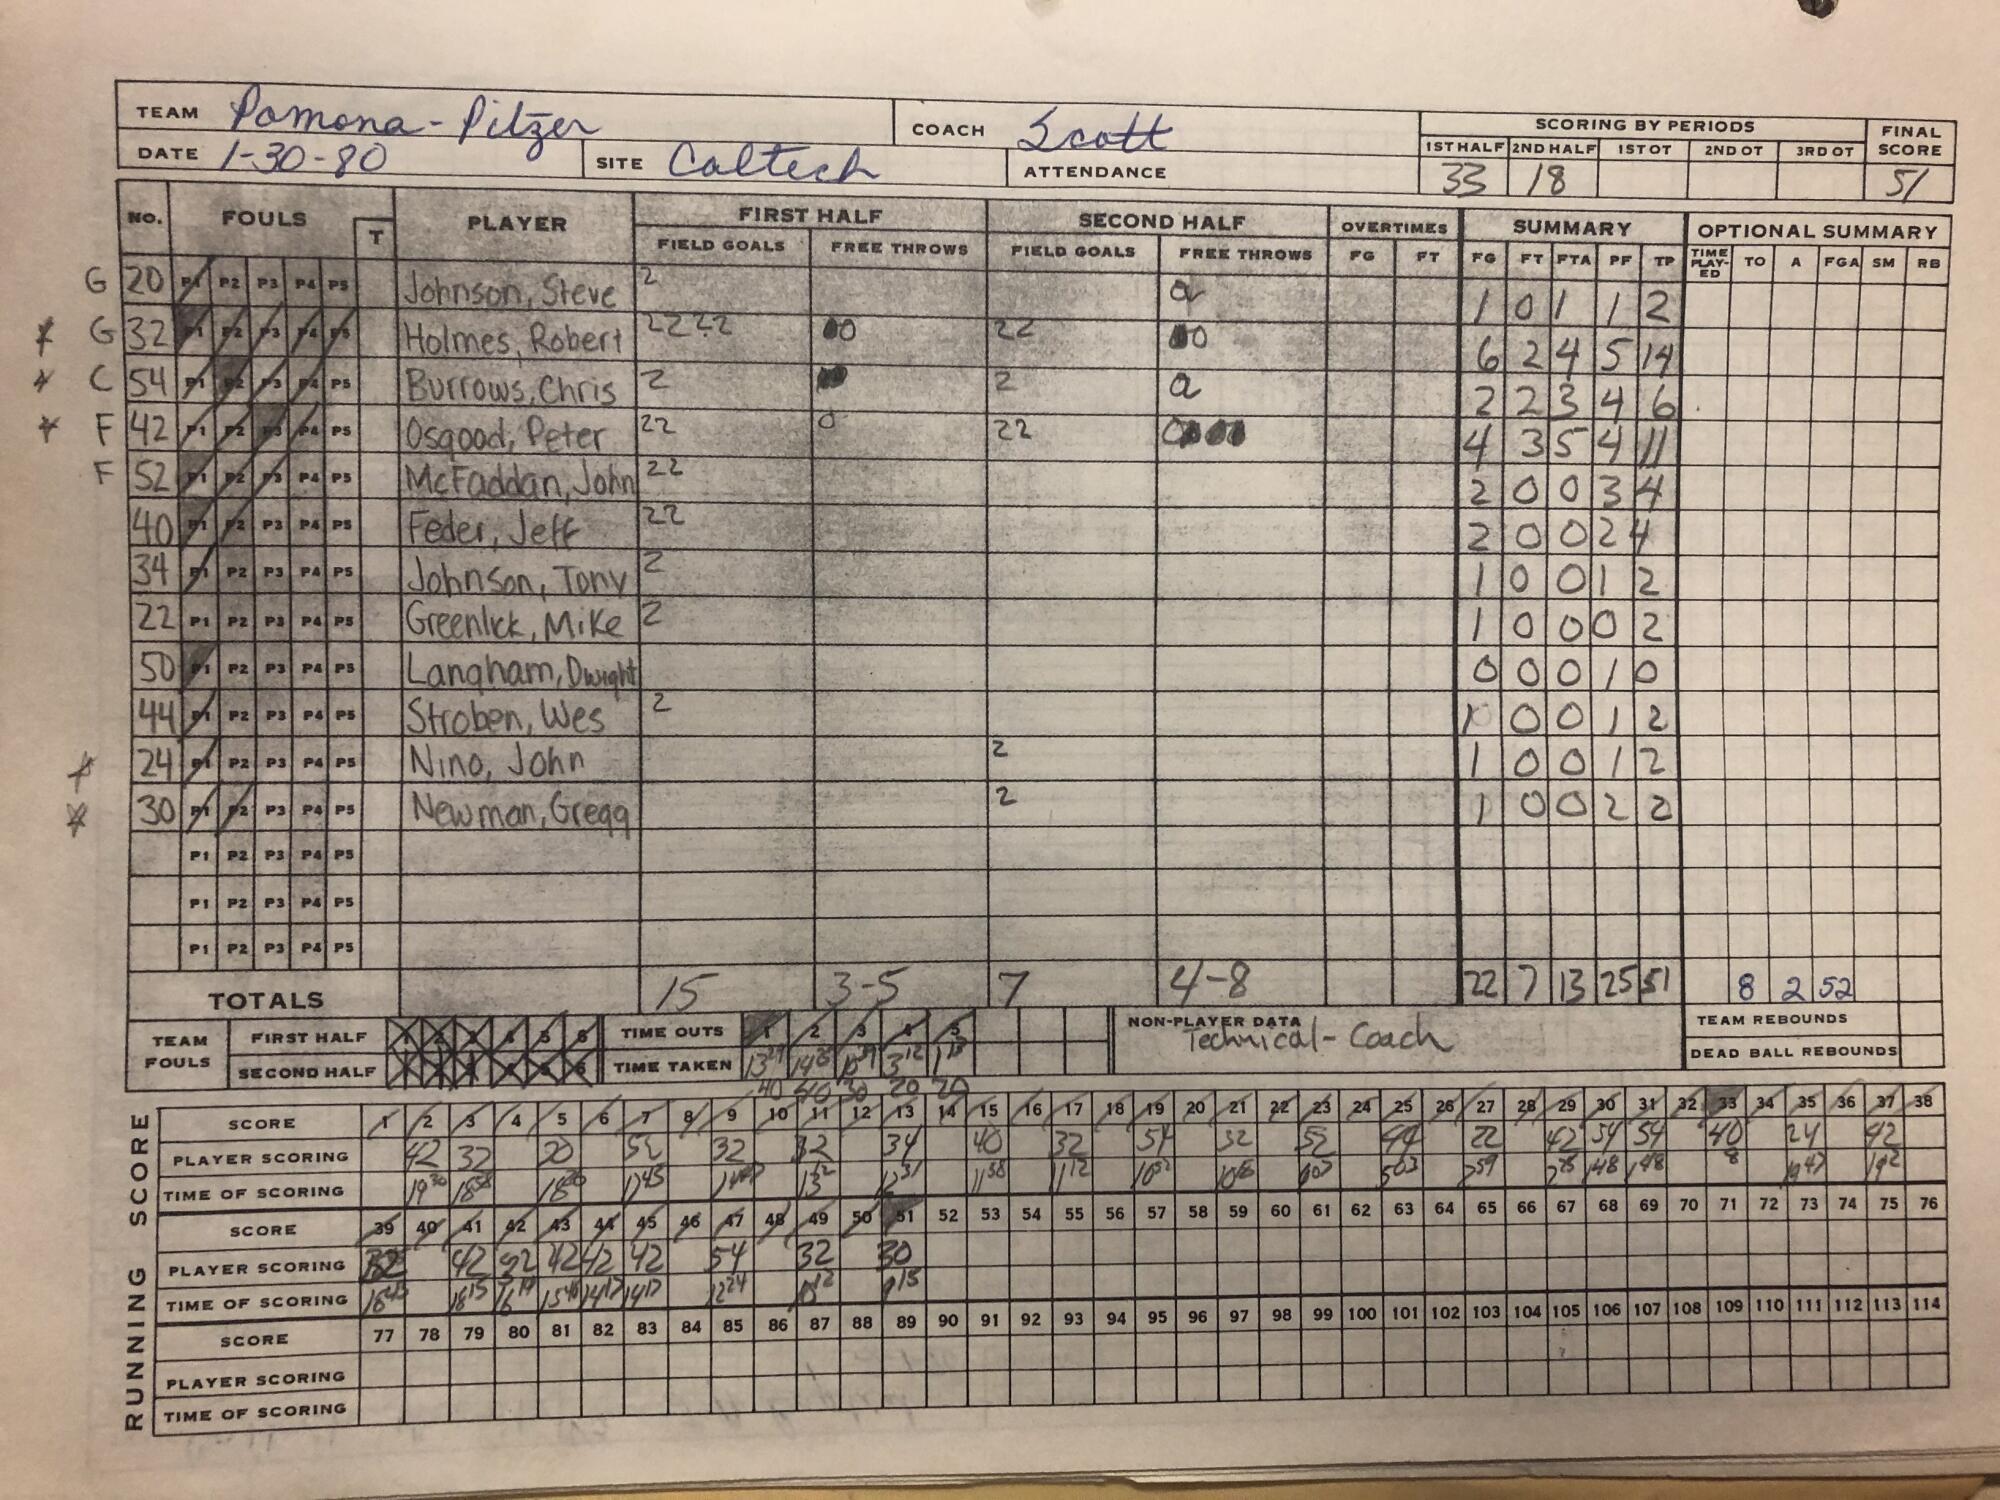 TEAM Pomona-Pitzer COACH Scott SCORING BY PERIODS FINAL SCORE
1ST HALF 2ND HALF 1ST OT 2ND OT 3RD OT
DATE 1-30-80 SITE Caltech ATTENDANCE 33 18 51
NO. FOULS T PLAYER FIRST HALF SECOND HALF OVERTIMES SUMMARY OPTIONAL SUMMARY
FIELD GOALS FREE THROWS FIELD GOALS FREE THROWS FG FT FG FT FTA PF TP TIME PLAY-ED TO A FGA SM RB
G 20 P1 P2 P3 P4 P5 Johnson, Steve 2 1 0 1 1 2
G 32 P1 P2 P3 P4 P5 Holmes, Robert 2222 22 6 2 4 5 14
C 54 P1 P2 P3 P4 P5 Burrows, Chris 2 2 2 2 3 4 6
F 42 P1 P2 P3 P4 P5 Osgood, Peter 22 0 22 4 3 5 4 11
F 52 P1 P2 P3 P4 P5 McFaddan, John 22 2 0 0 3 4
40 P1 P2 P3 P4 P5 Feder, Jeff 22 2 0 0 2 4
34 P1 P2 P3 P4 P5 Johnson, Tony 2 1 0 0 1 2
22 P1 P2 P3 P4 P5 Greenlick, Mike 2 1 0 0 0 2
50 P1 P2 P3 P4 P5 Langham, Dwight 0 0 0 1 0
44 P1 P2 P3 P4 P5 Stroben, Wes 2 1 0 0 1 2
24 P1 P2 P3 P4 P5 Nino, John 2 1 0 0 1 2
30 P1 P2 P3 P4 P5 Newman, Gregg 2 1 0 0 2 2
P1 P2 P3 P4 P5
P1 P2 P3 P4 P5
P1 P2 P3 P4 P5
TOTALS 15 3-5 7 4-8 22 7 13 25 51 8 2 52
TEAM FOULS FIRST HALF 1 2 3 4 5 6 TIME OUTS 1 2 3 4 5 NON-PLAYER DATA Technical-Coach TEAM REBOUNDS
SECOND HALF 1 2 3 4 5 6 TIME TAKEN DEAD BALL REBOUNDS
40 40 30 20 20
RUNNING SCORE
SCORE 1 2 3 4 5 6 7 8 9 10 11 12 13 14 15 16 17 18 19 20 21 22 23 24 25 26 27 28 29 30 31 32 33 34 35 36 37 38
PLAYER SCORING 42 32 20 52 32 32 34 40 32 54 32 52 44 22 42 54 54 40 24 42
TIME OF SCORING
SCORE 39 40 41 42 43 44 45 46 47 48 49 50 51 52 53 54 55 56 57 58 59 60 61 62 63 64 65 66 67 68 69 70 71 72 73 74 75 76
PLAYER SCORING 32 42 42 42 42 54 32 30
TIME OF SCORING
SCORE 77 78 79 80 81 82 83 84 85 86 87 88 89 90 91 92 93 94 95 96 97 98 99 100 101 102 103 104 105 106 107 108 109 110 111 112 113 114
PLAYER SCORING
TIME OF SCORING